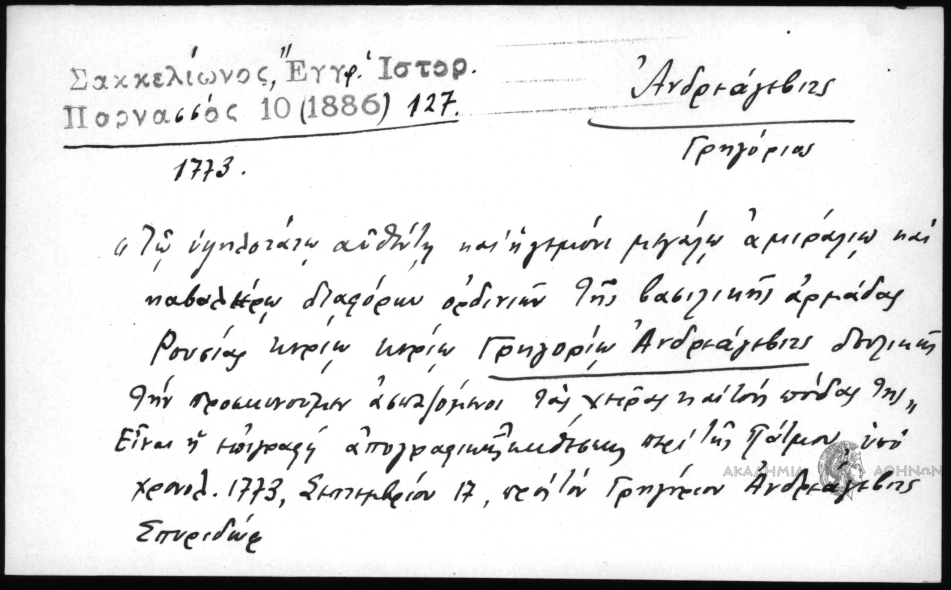 Σακκελίωνος, Ἔγγρ. Ἱστορ.
Παρνασσός 10 (1886) 127.
Ἀνδρεάγεβιτς
Γρηγόριος
1773.
"Τῷ ὑψηλοτάτῳ αὐθέντῃ καὶ ἡγεμόνι μεγάλῳ ἀμιράλιῳ καὶ
καβαλιέρῳ διαφόρων ὀρδινιῶν τῆς βασιλικῆς ἀρμάδας
Ρουσίας κυρίῳ κυρίῳ Γρηγορίῳ Ἀνδρεάγεβιτς δουλικῶς
τὴν προσκυνοῦμεν ἀσπαζόμενοι τὰς χεῖρας καὶ τοὺς πόδας της"
Εἶναι ἡ ἐπιγραφὴ ἀπογραφικῆς ἐκθέσεως περὶ τῆς Πάτμου, ὑπὸ
χρονολ. 1773, Σεπτεμβρίου 17, πρὸς τὸν Γρηγόριον Ἀνδρεάγεβιτς
Σπυριδώφ
ΑΚΑΔΗΜΙΑ ΑΘΗΝΩΝ